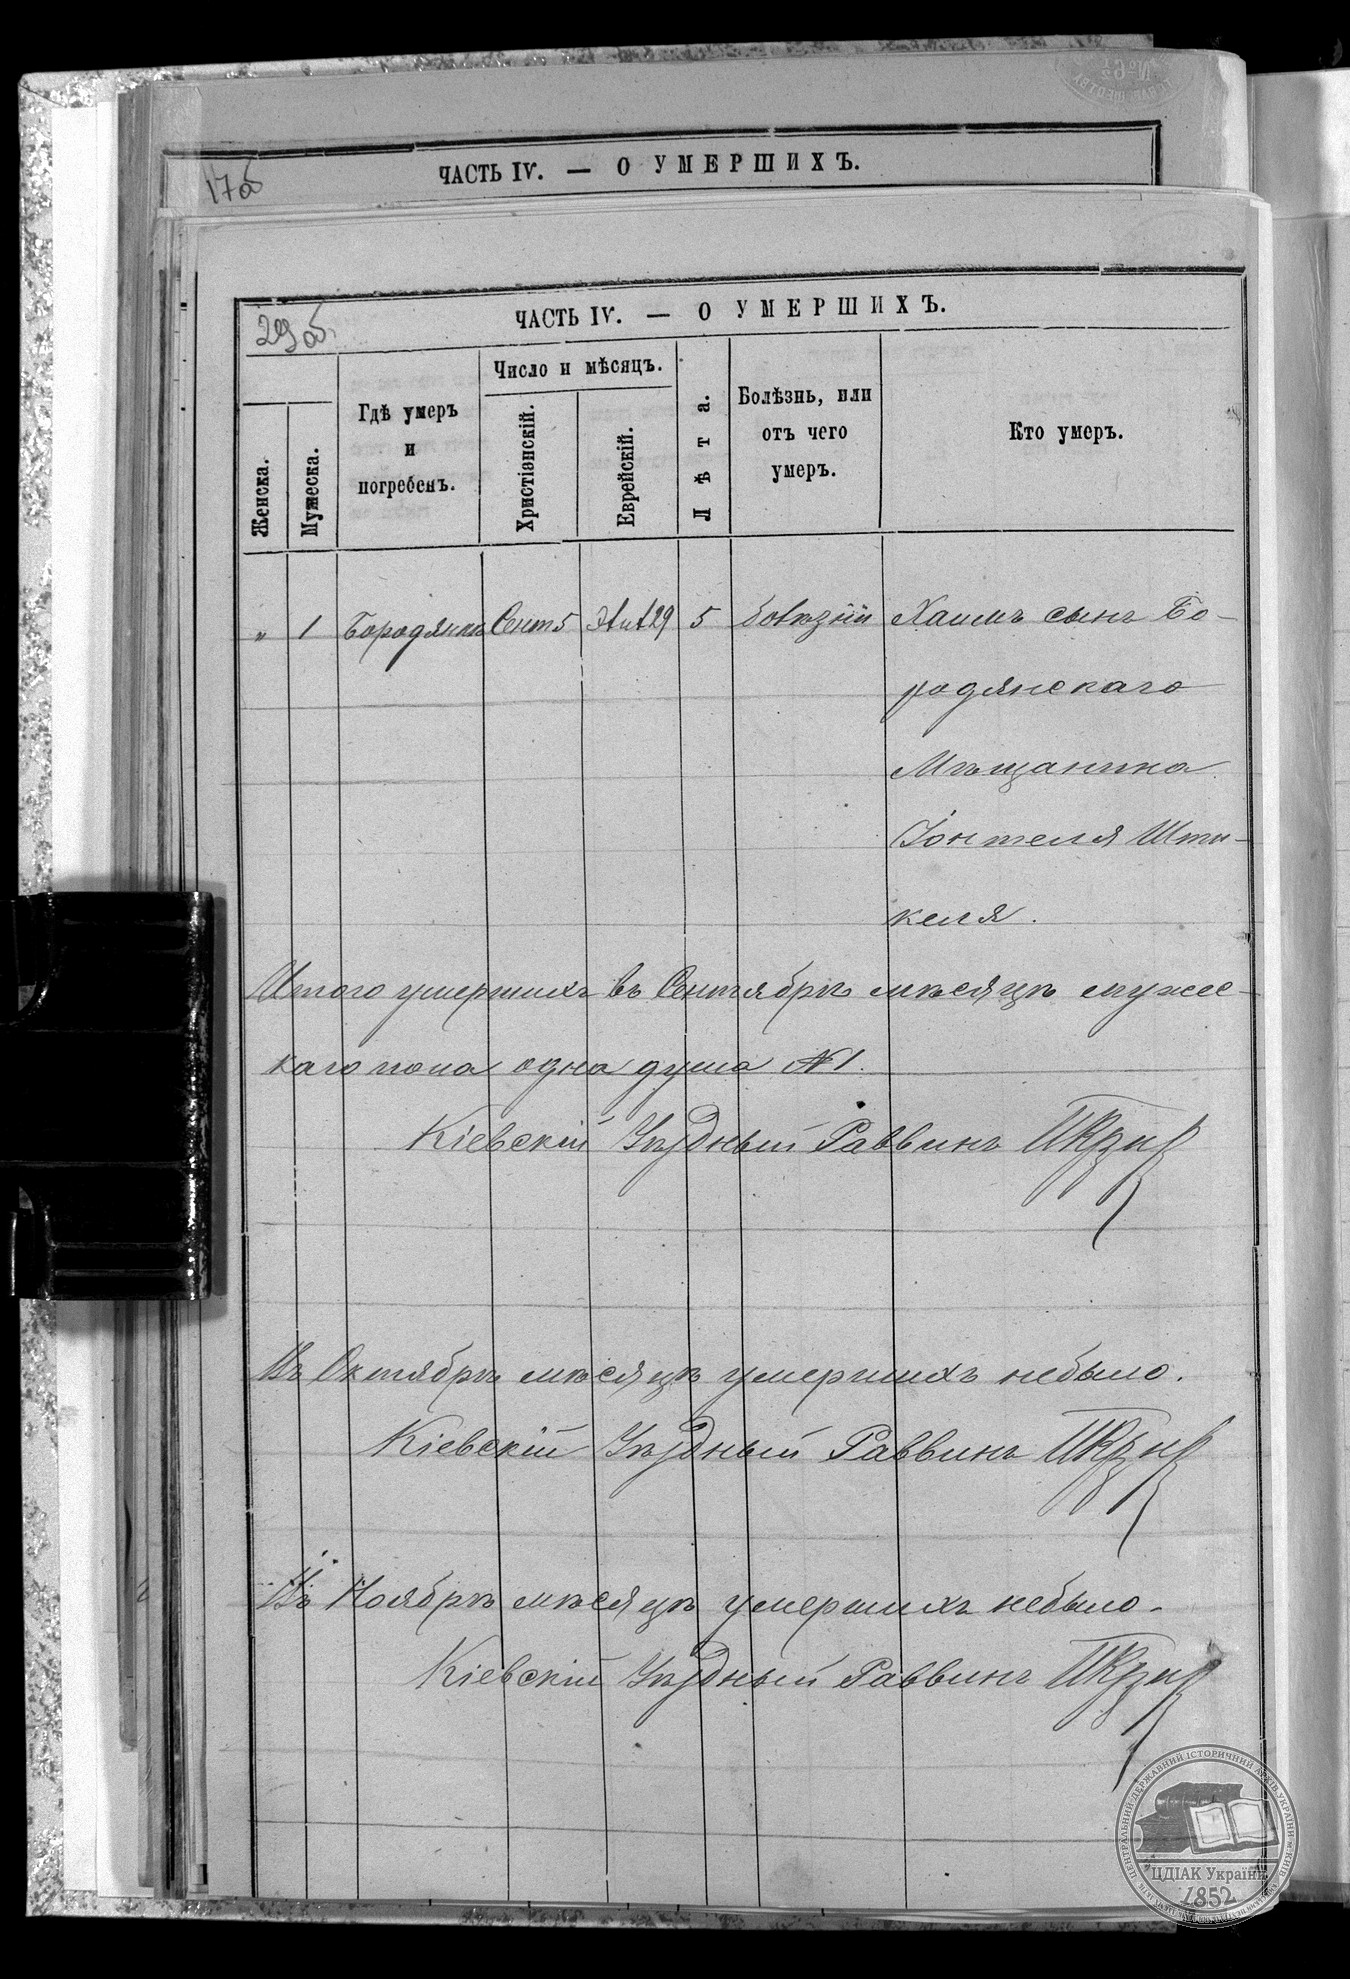 17об
ЧАСТЬ IV. — О УМЕРШИХЪ.
29об.
ЧАСТЬ IV. — О УМЕРШИХЪ.
Женска.
Мужеска.
Гдѣ умеръ
и
погребенъ.
Число и мѣсяцъ.
Христіанскій.
Еврейскій.
Лѣта.
Болѣзнь, или
отъ чего
умеръ.
Кто умеръ.
„ 1 Бородянкѣ Сент 5 29 5 Хаимъ сынъ Бо-
родянскаго
Мѣщанина
Іонтеля Шти-
келя.
Итого умершихъ въ Сентябрѣ мѣсяцѣ мужес-
каго пола одна душа №1.
Кіевскій Уѣздный Раввинъ
Въ Октябрѣ мѣсяцѣ умершихъ небыло.
Кіевскій Уѣздный Раввинъ
Въ Ноябрѣ мѣсяцѣ умершихъ небыло.
Кіевскій Уѣздный Раввинъ
ЦЕНТРАЛЬНИЙ ДЕРЖАВНИЙ ІСТОРИЧНИЙ АРХІВ УКРАЇНИ М. КИЇВ
ЦДІАК України
1852